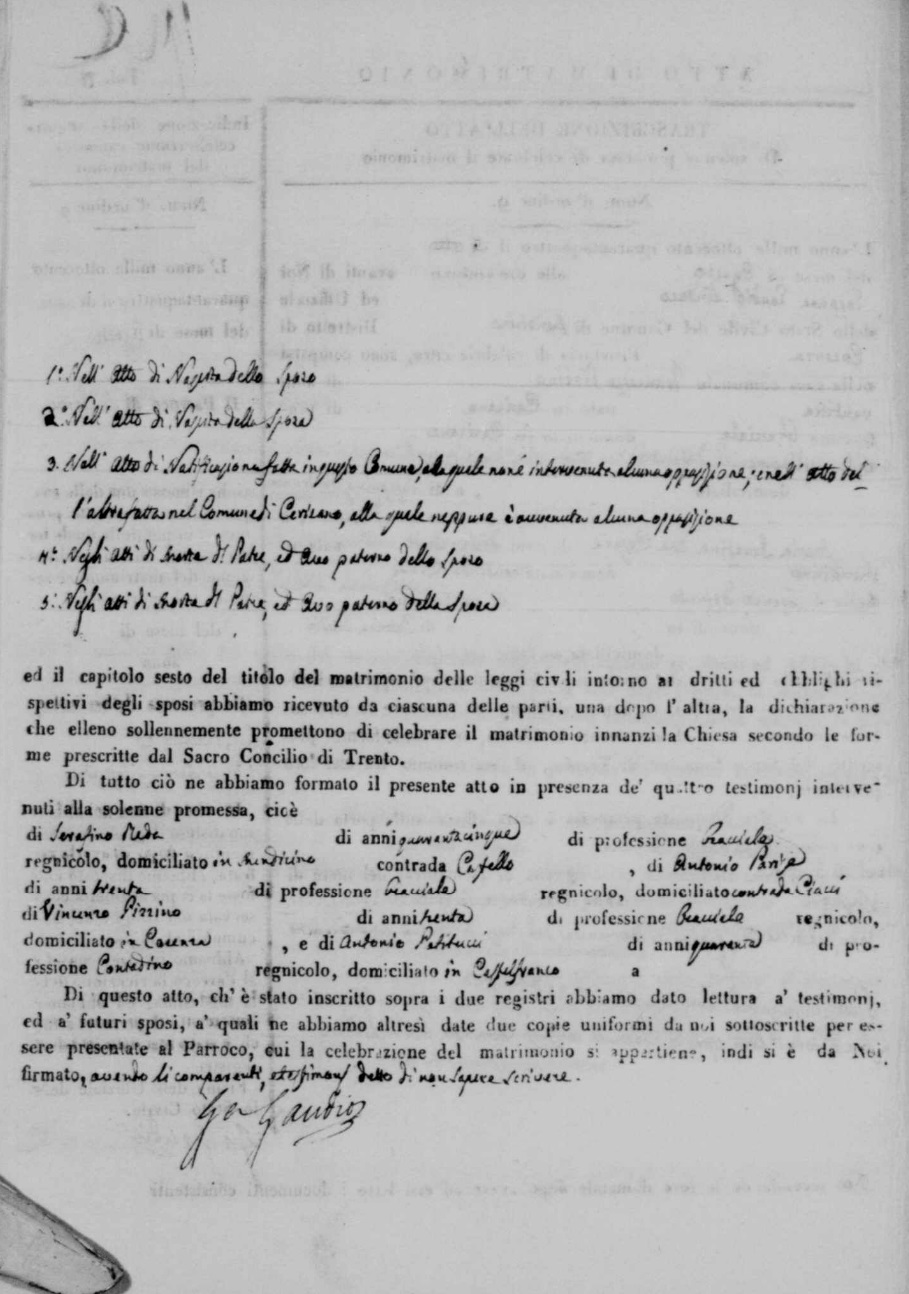 1.° Nell' atto di Nascita dello Sposo
2.° Nell' atto di Nascita della Sposa
3. Nell' atto di Notificazione fatta in questo Comune, alla quale non è intervenuta alcuna opposizione; e nell' atto del-
l'altra fatta nel Comune di Cerisano, alla quale neppure è avvenuta alcuna opposizione
4.° Negli atti di morte del Padre, ed Avo paterno dello Sposo
5.° Negli atti di morte del Padre, ed Avo paterno della Sposa
ed il capitolo sesto del titolo del matrimonio delle leggi civili intorno ai dritti ed obblighi ri-
spettivi degli sposi abbiamo ricevuto da ciascuna delle parti, una dopo l' altra, la dichiarazione
che elleno sollennemente promettono di celebrare il matrimonio innanzi la Chiesa secondo le for-
me prescritte dal Sacro Concilio di Trento.
Di tutto ciò ne abbiamo formato il presente atto in presenza de' quattro testimonj interve-
nuti alla solenne promessa, cioè
di Serafino Reda di anni quarantacinque di professione Bracciale
regnicolo, domiciliato in Mendicino contrada , di Antonio
di anni trenta di professione Bracciale regnicolo, domiciliato contrada
di Vincenzo Pizzino di anni trenta di professione Bracciale regnicolo,
domiciliato in Cosenza , e di Antonio Petitucci di anni quaranta di pro-
fessione Contadino regnicolo, domiciliato in Castelfranco a
Di questo atto, ch' è stato inscritto sopra i due registri abbiamo dato lettura a' testimonj,
ed a' futuri sposi, a' quali ne abbiamo altresì date due copie uniformi da noi sottoscritte per es-
sere presentate al Parroco, cui la celebrazione del matrimonio si appartiene, indi si è da Noi
firmato, avendo li comparenti, e testimonj detto di non sapere scrivere.
Gaudio